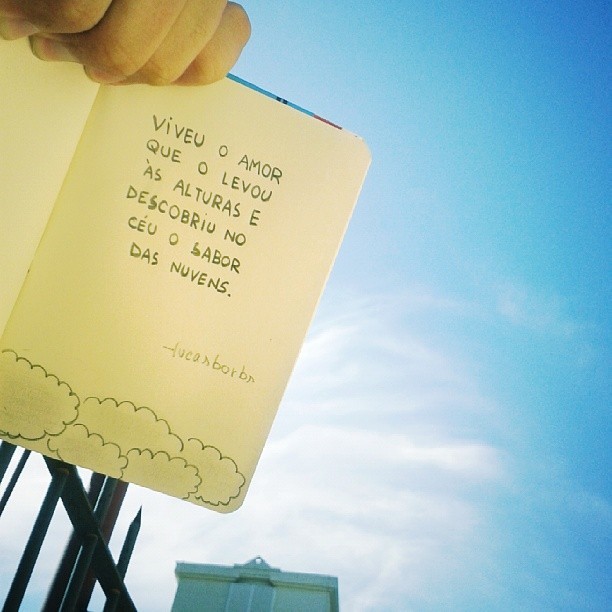 VIVEU O AMOR
QUE O LEVOU
ÀS ALTURAS E
DESCOBRIU NO
CÉU O SABOR
DAS NUVENS.
-lucasborbs